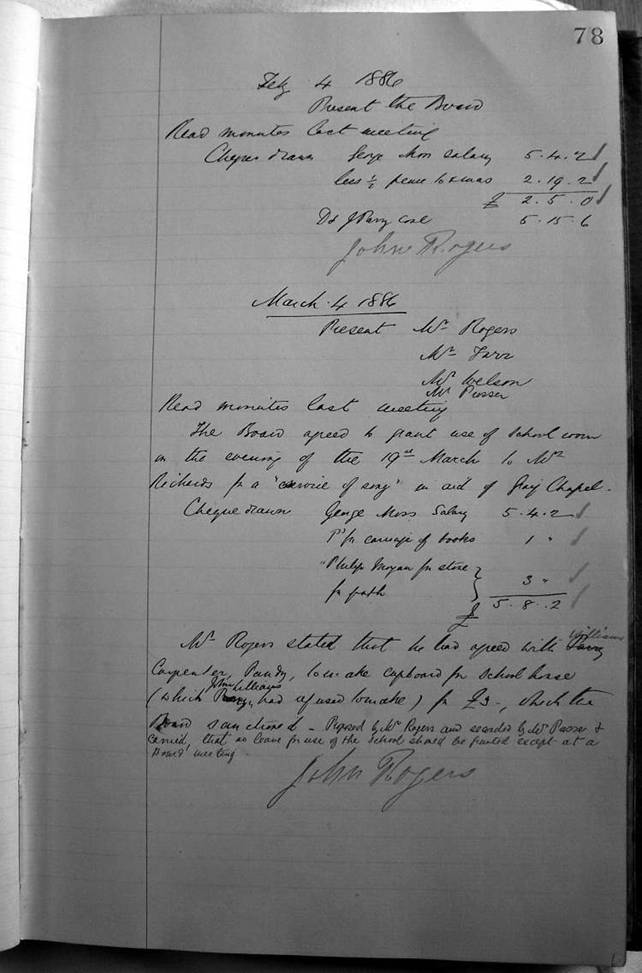 78
Feby 4 1886
Present the Board
Read minutes last meeting
Cheques drawn George Moss salary 5.4.2
less ½ pence 2.19.2
£ 2.5.0
Do J Parry coal 5.15.6
John Rogers
March 4 1886
Present Mr Rogers
Mr Farr
Mr Welson
Mr Prosser
Read minutes last meeting
The Board agreed to grant use of School room
on the evening of the 19th March to Mr
Richards for a "service of song" in aid of Chapel.
Cheque drawn George Moss Salary 5.4.2
Pd for carriage of books 1 "
" Philip Morgan for stone
for path 3 "
£ 5.8.2
Mr Rogers stated that he had agreed with Parry Williams
Carpenter, Pandy, to make cupboard for School house
(which Parry, John Williams had refused to make) for £3-, which the
Board sanctioned - Proposed by Mr Rogers and seconded by Mr Prosser &
carried, that no leave for use of the School should be granted except at a
Board meeting
John Rogers